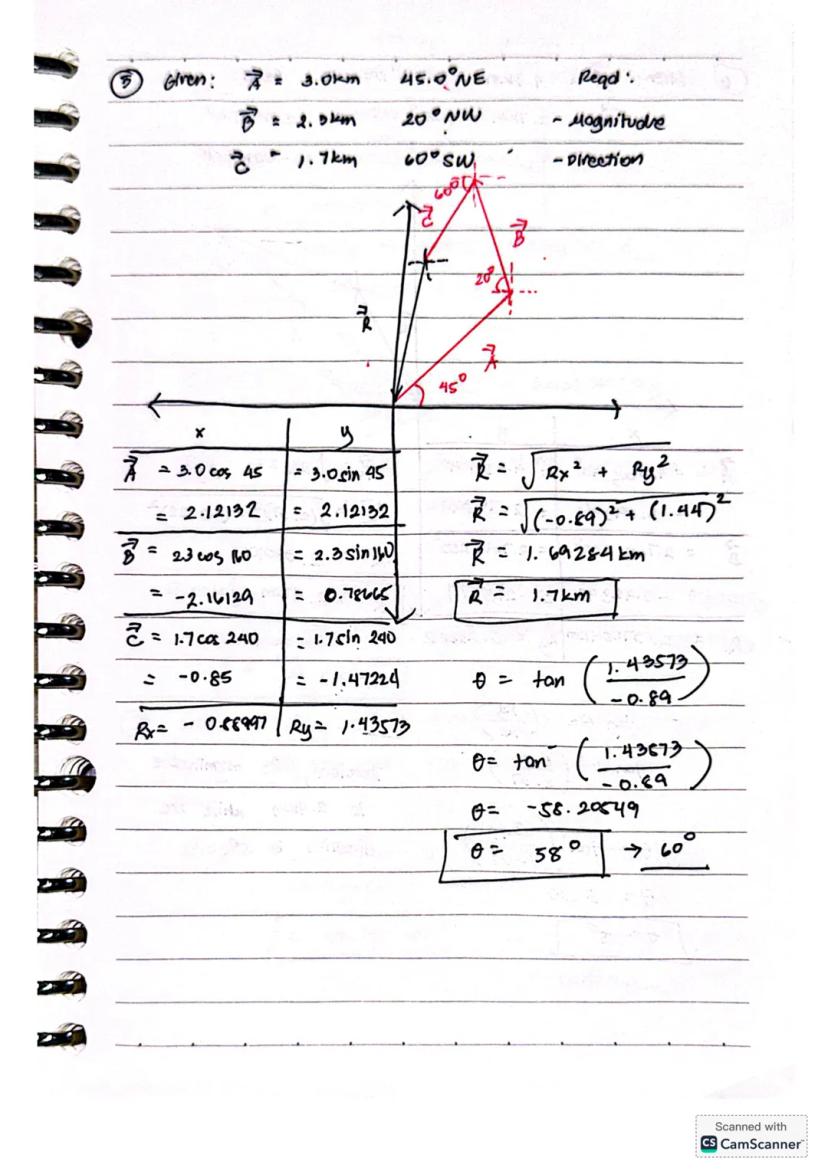 5 Given: A = 3.0km 45.0° NE Reqd:
B = 2.3km 20° NW - Magnitude
C = 1.7km 60° SW - Direction
60°
C
B
20°
R
A
45°
x y
A = 3.0 cos 45 = 3.0 sin 45
= 2.12132 = 2.12132
B = 23 cos 160 = 2.3 sin 160
= -2.16129 = 0.78665
C = 1.7 cos 240 = 1.7 sin 240
= -0.85 = -1.47224
Rx = - 0.88997 Ry = 1.43573
R = √Rx² + Ry²
R = √(-0.89)² + (1.44)²
R = 1.69284 km
R = 1.7km
θ = tan (1.43573 / -0.89)
θ = tan⁻ (1.43573 / -0.89)
θ = -58.20549
θ = 58° → 60°
Scanned with
CS CamScanner